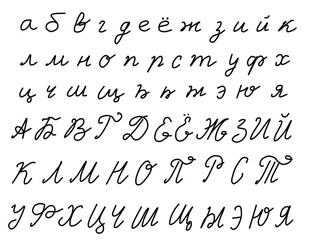 а б в г д е ё ж з и й к
л м н о п р с т у ф х
ц ч ш щ ы э ю я
А Б В Г Д Е Ё Ж З И Й
К Л М Н О П Р С Т
У Ф Х Ц Ч Ш Щ Ы Э Ю Я